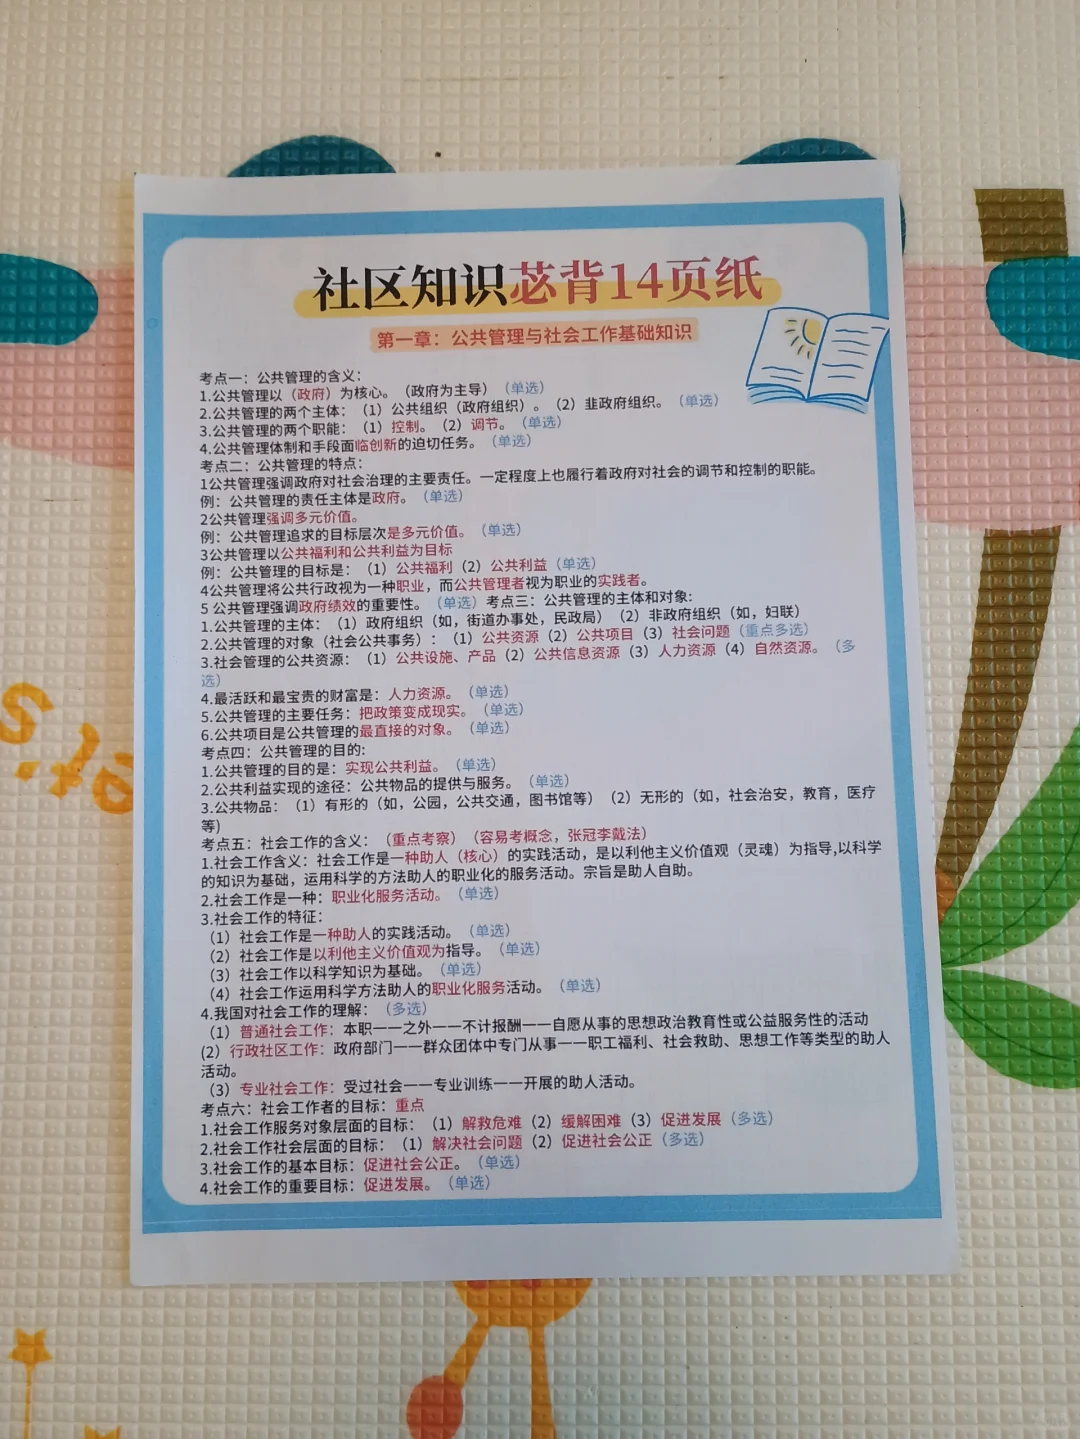 社区知识苾背14页纸
第一章：公共管理与社会工作基础知识
考点一：公共管理的含义：
1.公共管理以（政府）为核心。（政府为主导）（单选）
2.公共管理的两个主体：（1）公共组织（政府组织）。（2）韭政府组织。（单选）
3.公共管理的两个职能：（1）控制。（2）调节。（单选）
4.公共管理体制和手段面临创新的迫切任务。（单选）
考点二：公共管理的特点：
1公共管理强调政府对社会治理的主要责任。一定程度上也履行着政府对社会的调节和控制的职能。
例：公共管理的责任主体是政府。（单选）
2公共管理强调多元价值。
例：公共管理追求的目标层次是多元价值。（单选）
3公共管理以公共福利和公共利益为目标
例：公共管理的目标是：（1）公共福利（2）公共利益（单选）
4公共管理将公共行政视为一种职业，而公共管理者视为职业的实践者。
5 公共管理强调政府绩效的重要性。（单选）考点三：公共管理的主体和对象:
1.公共管理的主体：（1）政府组织（如，街道办事处，民政局）（2）非政府组织（如，妇联）
2.公共管理的对象（社会公共事务）：（1）公共资源（2）公共项目（3）社会问题（重点多选）
3.社会管理的公共资源：（1）公共设施、产品（2）公共信息资源（3）人力资源（4）自然资源。（多
选）
4.最活跃和最宝贵的财富是：人力资源。（单选）
5.公共管理的主要任务：把政策变成现实。（单选）
6.公共项目是公共管理的最直接的对象。（单选）
考点四：公共管理的目的:
1.公共管理的目的是：实现公共利益。（单选）
2.公共利益实现的途径：公共物品的提供与服务。（单选）
3.公共物品：（1）有形的（如，公园，公共交通，图书馆等）（2）无形的（如，社会治安，教育，医疗
等）
考点五：社会工作的含义：（重点考察）（容易考概念，张冠李戴法）
1.社会工作含义：社会工作是一种助人（核心）的实践活动，是以利他主义价值观（灵魂）为指导,以科学
的知识为基础，运用科学的方法助人的职业化的服务活动。宗旨是助人自助。
2.社会工作是一种：职业化服务活动。（单选）
3.社会工作的特征：
（1）社会工作是一种助人的实践活动。（单选）
（2）社会工作是以利他主义价值观为指导。（单选）
（3）社会工作以科学知识为基础。（单选）
（4）社会工作运用科学方法助人的职业化服务活动。（单选）
4.我国对社会工作的理解：（多选）
（1）普通社会工作：本职一一之外一一不计报酬一一自愿从事的思想政治教育性或公益服务性的活动
（2）行政社区工作：政府部门一一群众团体中专门从事一一职工福利、社会救助、思想工作等类型的助人
活动。
（3）专业社会工作：受过社会一一专业训练一一开展的助人活动。
考点六：社会工作者的目标：重点
1.社会工作服务对象层面的目标：（1）解救危难（2）缓解困难（3）促进发展（多选）
2.社会工作社会层面的目标：（1）解决社会问题（2）促进社会公正（多选）
3.社会工作的基本目标：促进社会公正。（单选）
4.社会工作的重要目标：促进发展。（单选）